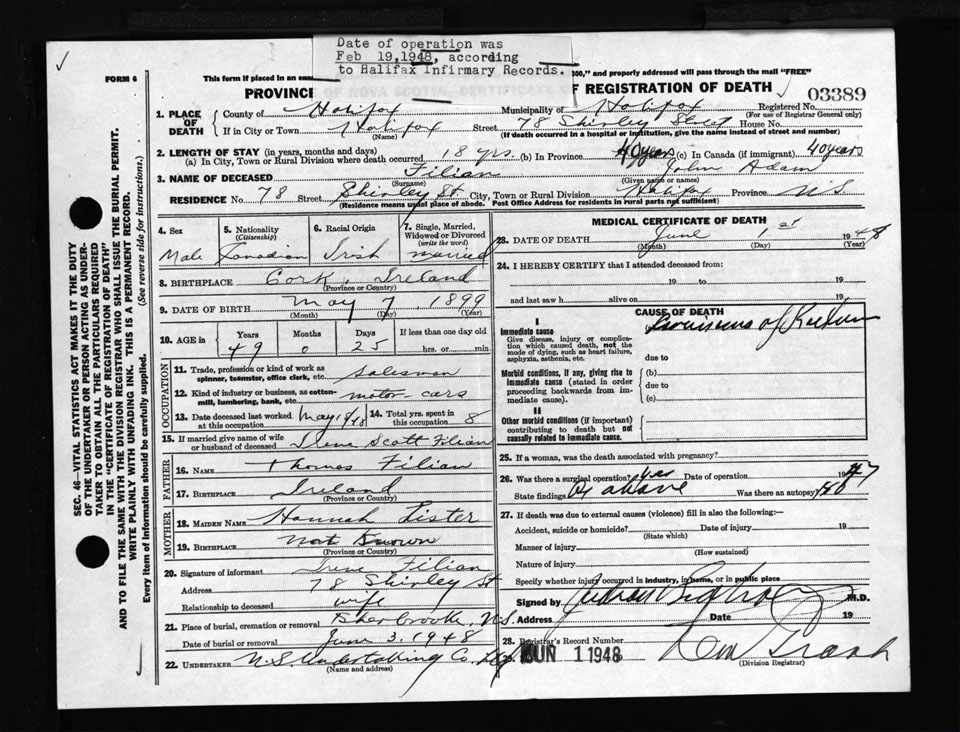 Date of operation was
Feb 19,1948, according
to Halifax Infirmary Records.
FORM 6
This form if placed in an
300," and properly addressed will pass through the mail "FREE"
PROVINCE OF NOVA SCOTIA, CERTIFICATE OF REGISTRATION OF DEATH
03389
1. PLACE OF DEATH
County of Halifax Municipality of Halifax Registered No.
(For use of Registrar General only)
If in City or Town Halifax Street 78 Shirley Street House No.
(Name) (If death occurred in a hospital or institution, give the name instead of street and number)
2. LENGTH OF STAY (in years, months and days)
(a) In City, Town or Rural Division where death occurred 18 yrs. (b) In Province 40 years (c) In Canada (if immigrant) 40 years
3. NAME OF DECEASED Filian John Adam
(Surname) (Given name or names)
RESIDENCE No. 78 Street Shirley St City, Town or Rural Division Halifax Province N.S
(Residence means usual place of abode. Post Office Address for residents in rural parts not sufficient)
4. Sex 5. Nationality (Citizenship) 6. Racial Origin 7. Single, Married, Widowed or Divorced (write the word)
Male Canadian Irish married
8. BIRTHPLACE Cork, Ireland
(Province or Country)
9. DATE OF BIRTH May 7 1899
(Month) (Day) (Year)
10. AGE in Years Months Days If less than one day old
49 0 25 hrs. or min.
OCCUPATION
11. Trade, profession or kind of work as spinner, teamster, office clerk, etc. Salesman
12. Kind of industry or business, as cotton-mill, lumbering, bank, etc. motor-cars
13. Date deceased last worked at this occupation May 1948 14. Total yrs. spent in this occupation 8
15. If married give name of wife or husband of deceased Irene Scott Filian
FATHER
16. NAME Thomas Filian
17. BIRTHPLACE Ireland
(Province or Country)
MOTHER
18. MAIDEN NAME Hannah Lister
19. BIRTHPLACE Not Known
(Province or Country)
20. Signature of informant Irene Filian
Address 78 Shirley St
Relationship to deceased wife
21. Place of burial, cremation or removal Sherbrooke, N.S.
Date of burial or removal June 3, 1948
22. UNDERTAKER N.S Undertaking Co. Ltd
(Name and address)
MEDICAL CERTIFICATE OF DEATH
23. DATE OF DEATH June 1st 1948
(Month) (Day) (Year)
24. I HEREBY CERTIFY that I attended deceased from:
19 to 19
and last saw h alive on 19
CAUSE OF DEATH
I
Immediate cause
Give disease, injury or complication which caused death, not the mode of dying, such as heart failure, asphyxia, asthenia, etc.
Carcinoma of Rectum
due to
Morbid conditions, if any, giving rise to immediate cause (stated in order proceeding backwards from immediate cause).
(b)
due to
(c)
II
Other morbid conditions (if important) contributing to death but not causally related to immediate cause.
25. If a woman, was the death associated with pregnancy?
26. Was there a surgical operation? yes Date of operation 1947
State findings as above Was there an autopsy? No
27. If death was due to external causes (violence) fill in also the following:—
Accident, suicide or homicide? Date of injury 19
(State which)
Manner of injury
(How sustained)
Nature of injury
Specify whether injury occurred in industry, in home, or in public place
Signed by M.D.
Address Date 19
28. Registrar's Record Number
JUN 1 1948
(Division Registrar)
SEC. 46—VITAL STATISTICS ACT MAKES IT THE DUTY
OF THE UNDERTAKER OR PERSON ACTING AS UNDER-
TAKER TO OBTAIN ALL THE PARTICULARS REQUIRED
IN THE "CERTIFICATE OF REGISTRATION OF DEATH"
AND TO FILE THE SAME WITH THE DIVISION REGISTRAR WHO SHALL ISSUE THE BURIAL PERMIT.
WRITE PLAINLY WITH UNFADING INK. THIS IS A PERMANENT RECORD.
Every item of Information should be carefully supplied. (See reverse side for instructions.)